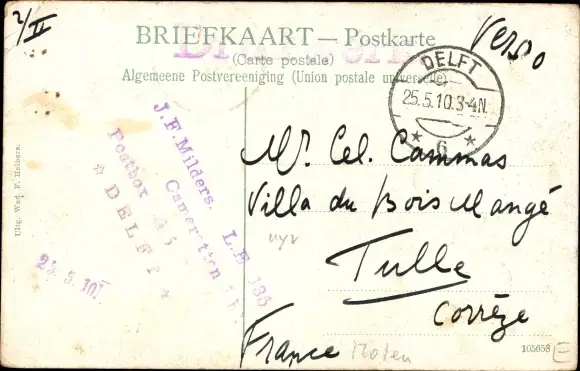 2/II
BRIEFKAART — Postkarte
(Carte postale)
Algemeene Postvereeniging (Union postale universelle)
Verso
DELFT
25.5.10.3-4N.
* 6 *
J.F. Milders. L.E 135
Postbox
* DELFT *
25. 5. 10.
Uitg. Wed. F. Helbers.
Mr. Cel. Cammas
Villa du Bois Mangé
Tulle
Corrèze
France
Molen
105658
E